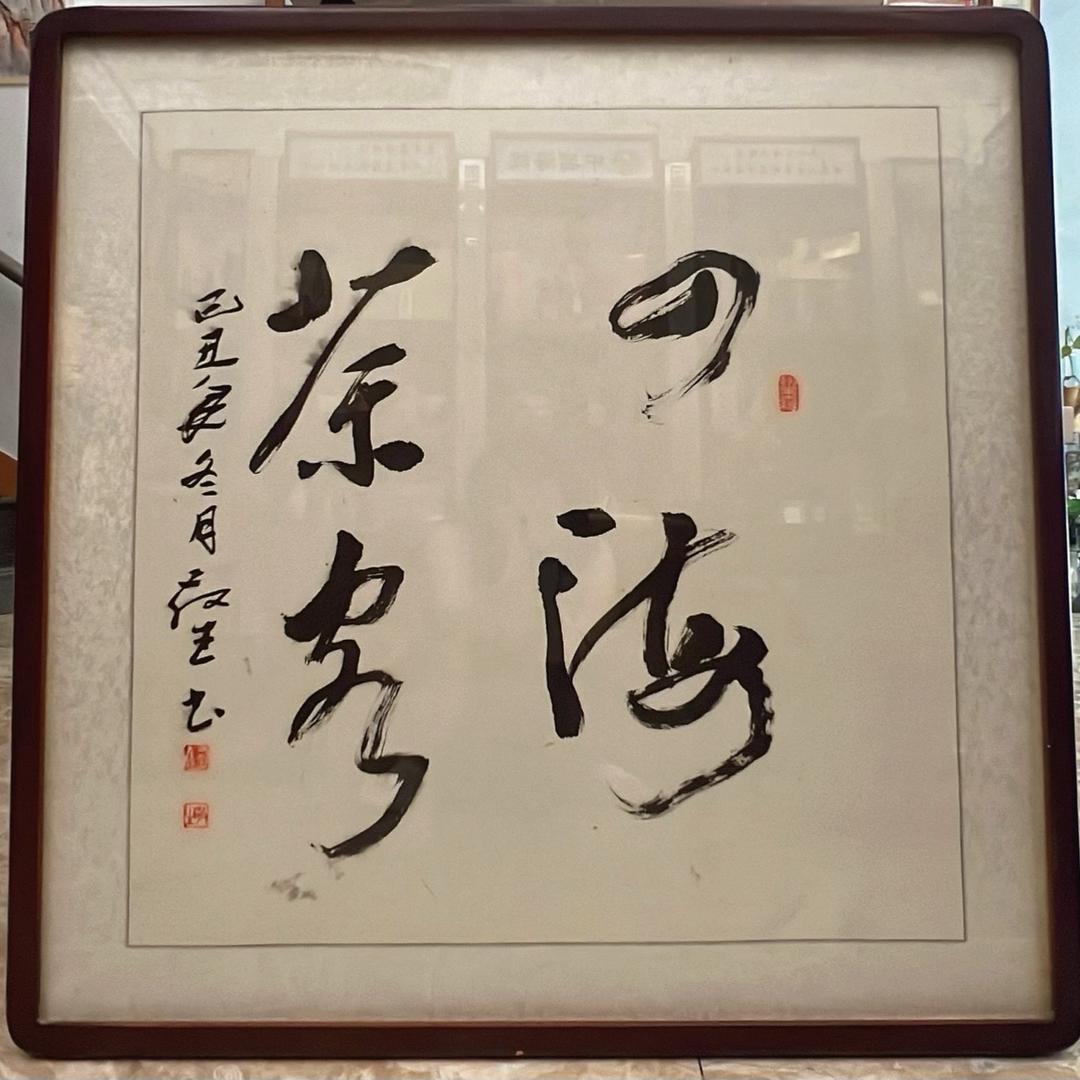 四海
茶客
己丑年冬月
生书